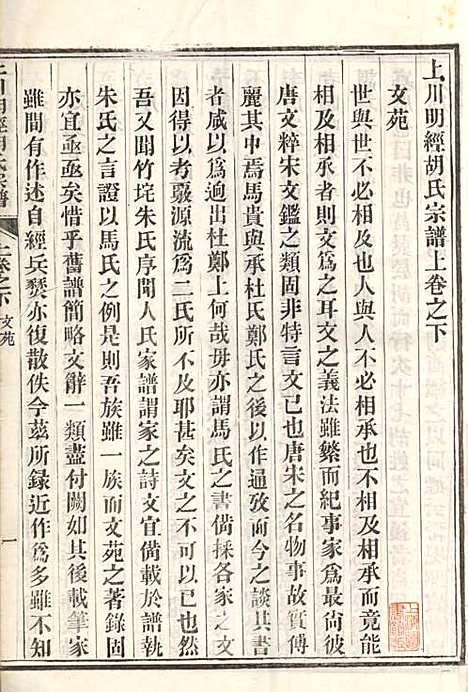 上川明經胡氏宗譜上卷之下
文苑
世與世不必相承也人與人不必相及也而相承而竟能
相及相承者則文爲之耳文之義法雖繁而紀事家爲最尚彼
唐文粹宋文鑑之類固非特選文已也唐宋之名物事故實傳
麗其中焉馬貴與承杜氏鄭氏之後以作通攷而今之談其書
者咸以爲迥出杜鄭上何哉毋亦謂馬氏之書備採各家之文
因得以考覈源流爲二氏所不及耶甚矣文之不可已也
吾又聞竹垞朱氏序聞人氏家譜謂家之詩文宜備載於譜執
朱氏之言證以馬氏之例是則吾族雖一族而文苑之著錄固
亦宜亟亟矣惜乎舊譜簡略文辭一類盡付闕如其後載筆家
雖間有作述自經兵燹亦復散佚今茲所錄近作爲多雖不知
上川明經胡氏宗譜
上卷之下 文苑
一